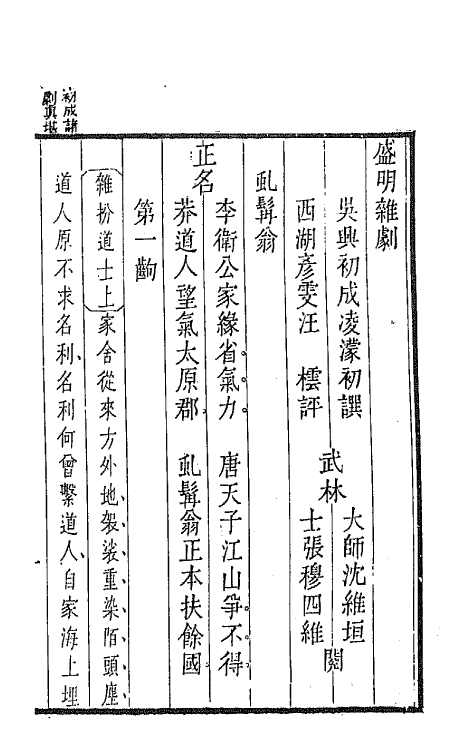 盛明雜劇
吳興初成凌濛初譔
西湖彥雯汪 櫄評
武林
大師沈維垣
士張穆四維
閱
虬髯翁
正名
李衛公家緣省氣力 唐天子江山爭不得
莽道人望氣太原郡 虬髯翁正本扶餘國
第一齣
雜扮道士上家舍從來方外地袈裟重染陌頭塵
道人原不求名利名利何曾繫道人自家海上埋
初成諸
劇真堪